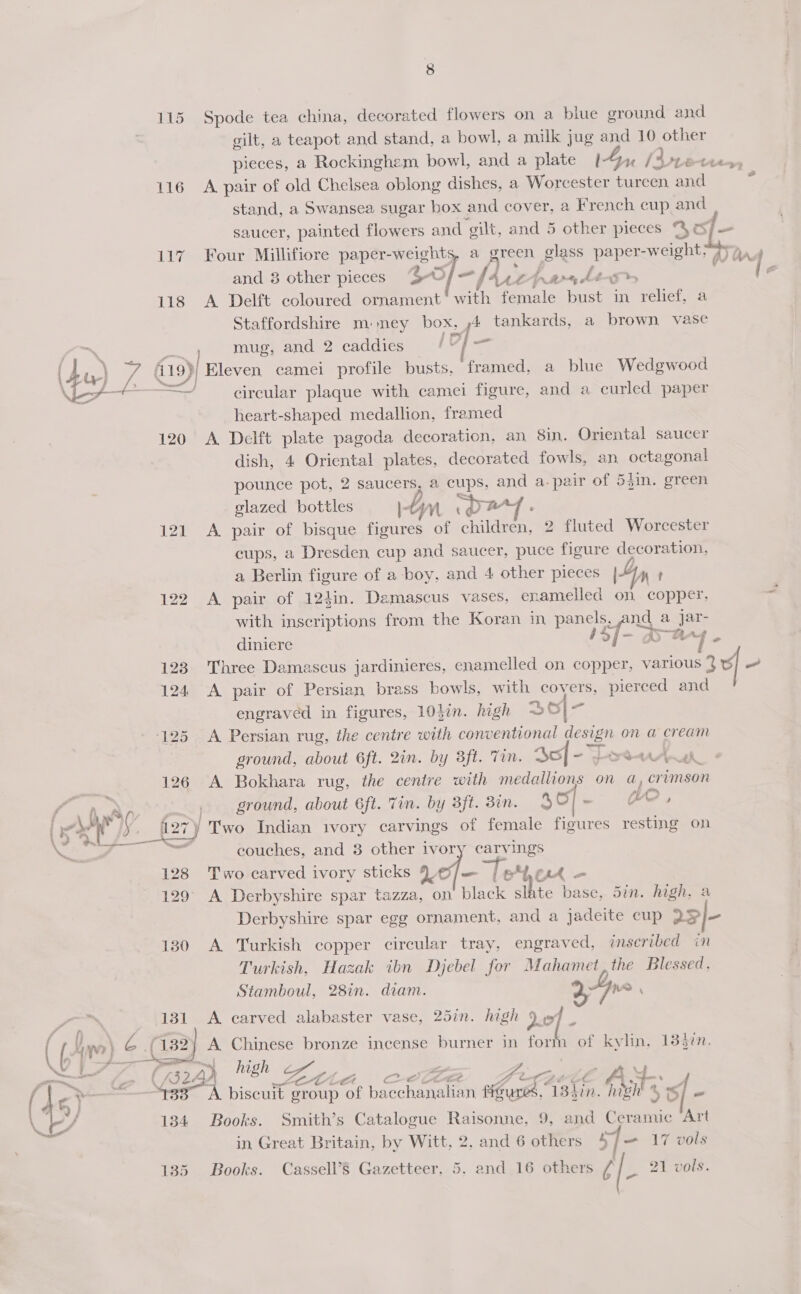 8
115 Spode tea china, decorated flowers on a blue ground and
gilt, a teapot and stand, a bowl, a milk jug and 10 other
pieces, a Rockingham bowl, and a plate
116 A pair of old Chelsea oblong dishes, a Worcester tureen and
stand, a Swansea sugar box and cover, a French cup and
saucer, painted flowers and gilt, and 5 other pieces
117 Four Millifiore paper-weights, a green glass paper-weight,
and 3 other pieces
118 A Delft coloured ornament with female bust in relief, a
Staffordshire money box, 4 tankards, a brown vase
mug, and 2 caddies
7 119 Eleven camei profile busts, framed, a blue Wedgwood
circular plaque with camei figure, and a curled paper
heart-shaped medallion, framed
120 A Delft plate pagoda decoration, an 8in. Oriental saucer
dish, 4 Oriental plates, decorated fowls, an octagonal
pounce pot, 2 saucers, a cups, and a pair of 5½in. green
glazed bottles
121 A pair of bisque figures of children, 2 fluted Worcester
cups, a Dresden cup and saucer, puce figure decoration,
a Berlin figure of a boy, and 4 other pieces
122 A pair of 12½in. Damascus vases, enamelled on copper,
with inscriptions from the Koran in panels, and a jar-
diniere 15/-
123 Three Damascus jardinieres, enamelled on copper, various
124 A pair of Persian brass bowls, with covers, pierced and
engraved in figures, 10½in. high 30/-
125 A Persian rug, the centre with conventional design on a cream
ground, about 6ft. 2in. by 3ft. 7in. 30/-
126 A Bokhara rug, the centre with medallions on a crimson
ground, about 6ft. 7in. by 3ft. 3in. 30/- do,
127 Two Indian ivory carvings of female figures resting on
couches, and 3 other ivory carvings
128 Two carved ivory sticks 20/-
129 A Derbyshire spar tazza, on black slate base, 5in. high, a
Derbyshire spar egg ornament, and a jadeite cup
130 A Turkish copper circular tray, engraved, inscribed in
Turkish, Hazak ibn Djebel for Mahamet the Blessed,
Stamboul, 28in. diam.
131 A carved alabaster vase, 25in. high 20/-
6 132 A Chinese bronze incense burner in form of kylin, 13½in.
132A high
133 A biscuit group of bacchanalian figures, 13½in. high
134 Books. Smith's Catalogue Raisonne, 9, and Ceramic Art
in Great Britain, by Witt, 2, and 6 others 5/- 17 vols
135 Books. Cassell's Gazetteer, 5, and 16 others 21 vols.